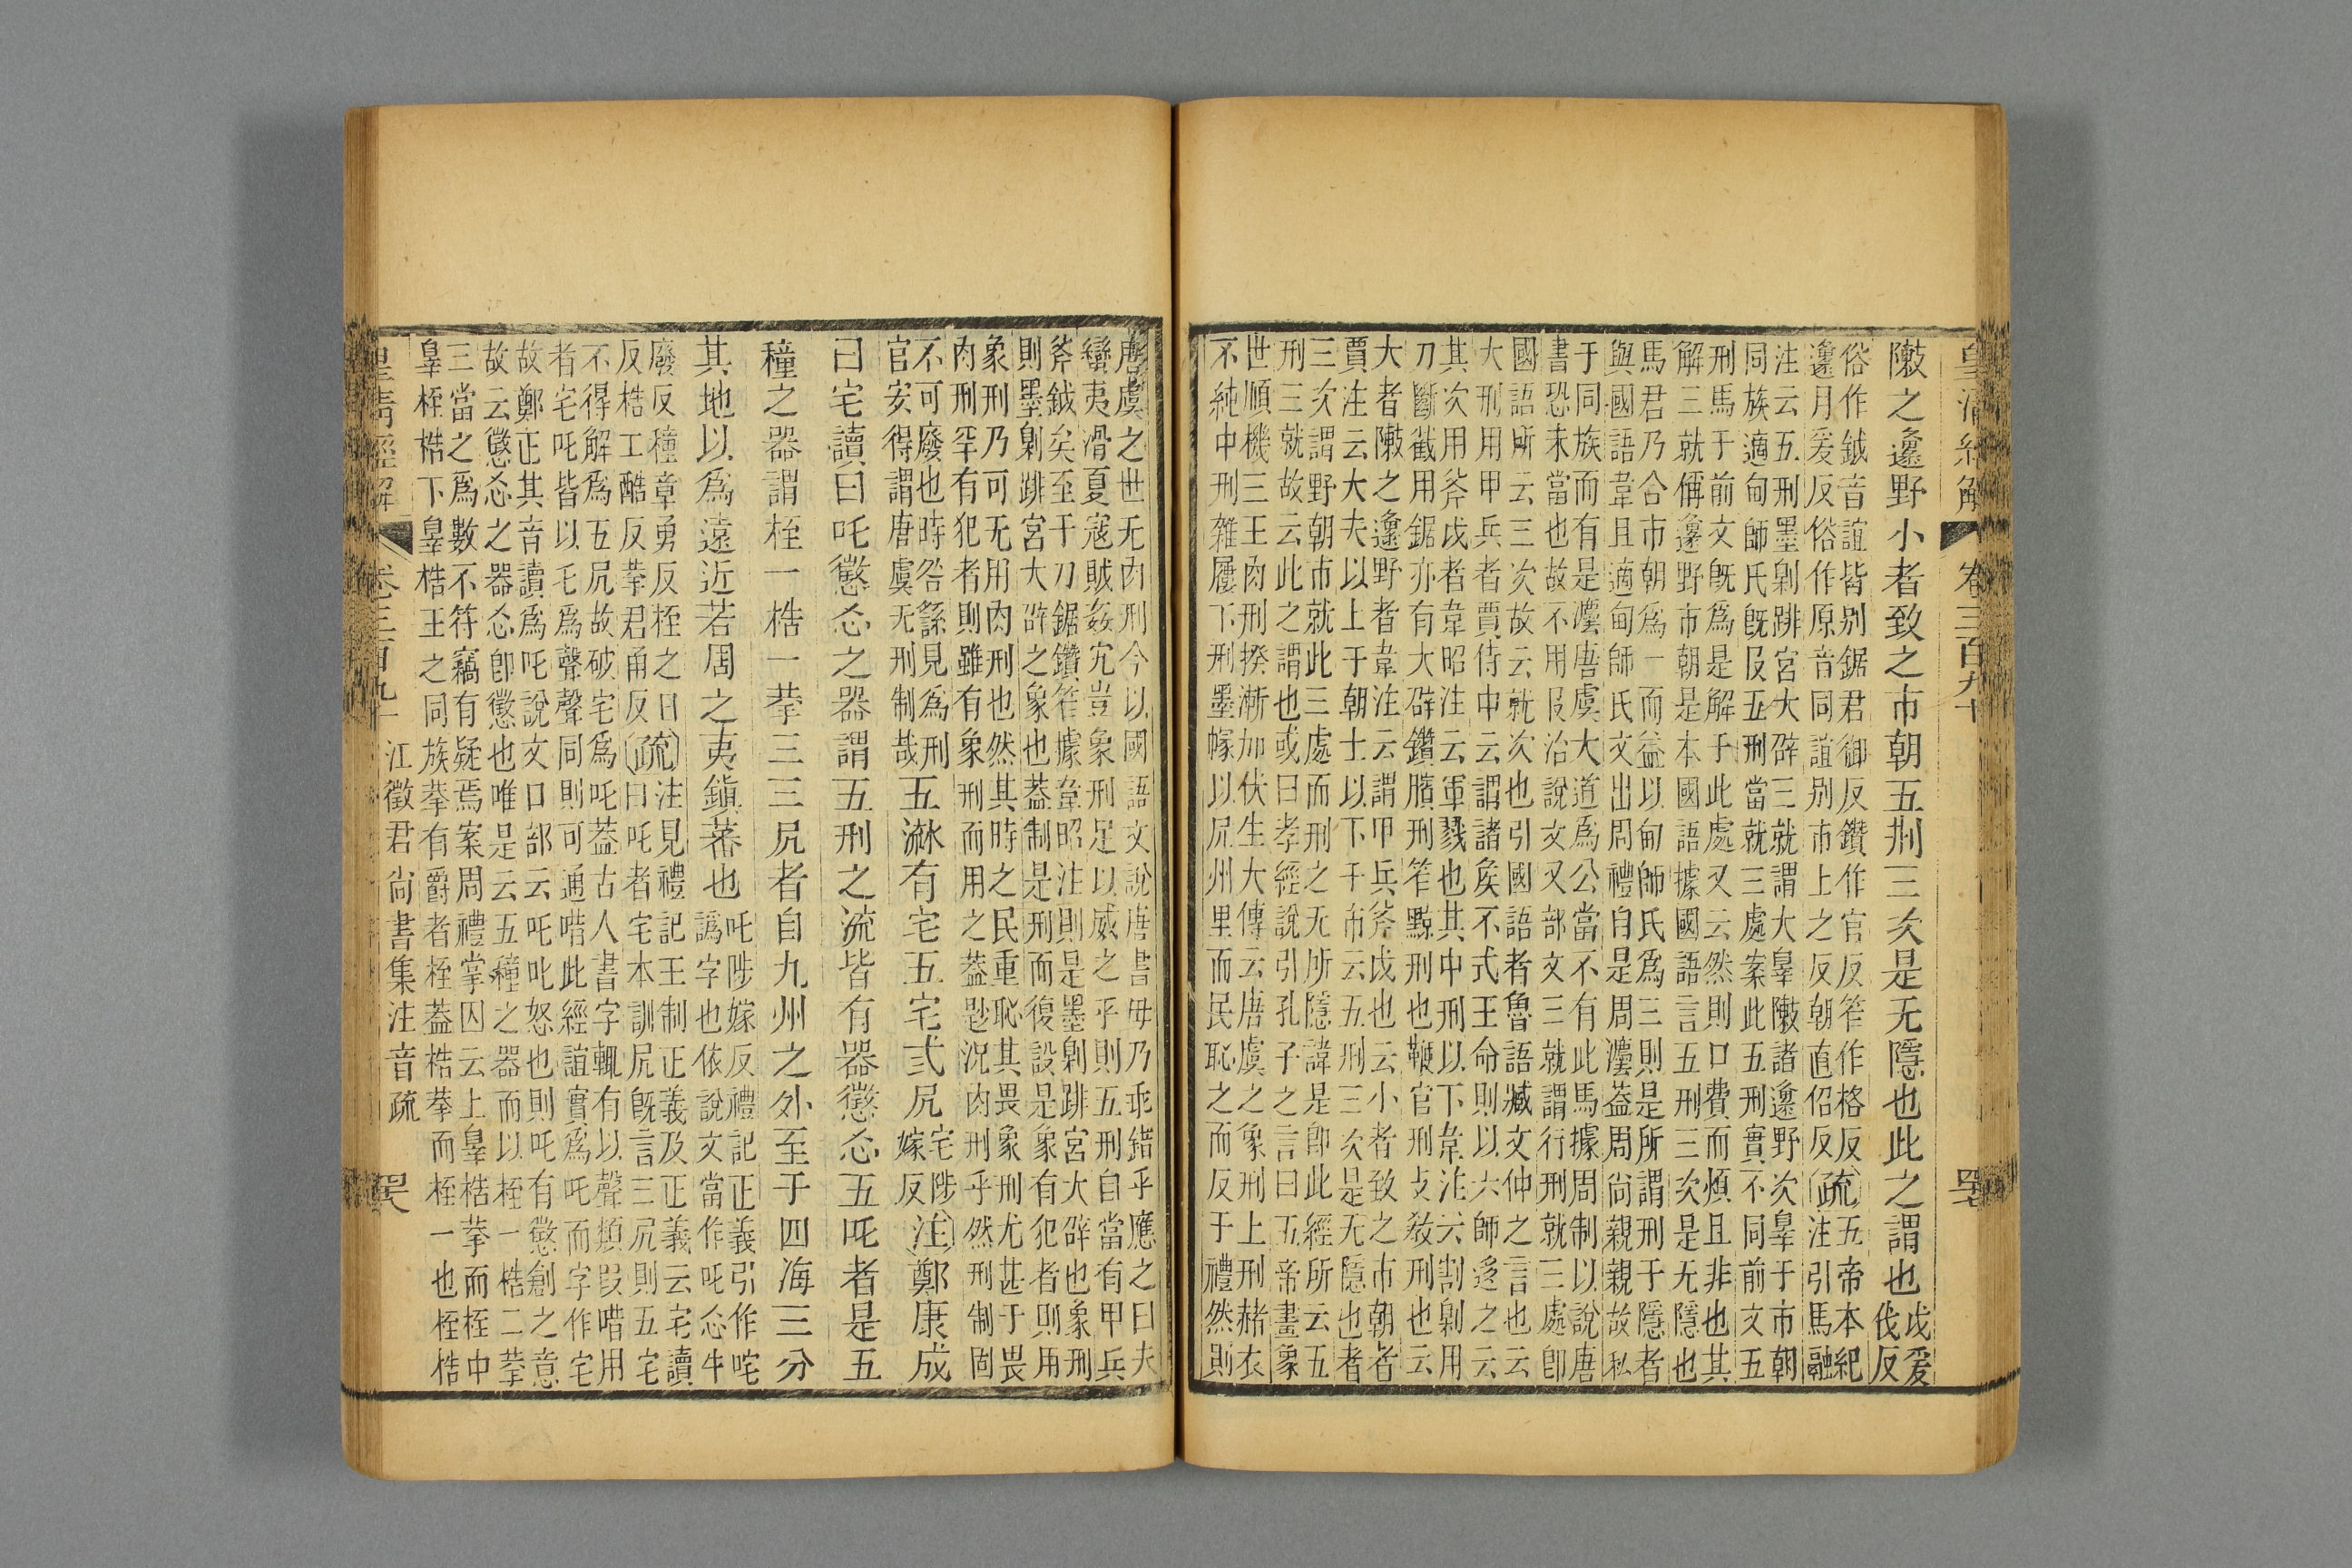 皇清經解 卷三百九十 罕
陳之邊野小者致之市朝五荆三次是无隱也此之謂也戊爰
伐反
俗作鉞音誼皆别鋸君御反鑽作官反笮作格反疏五帝本紀
邊月爰反俗作原音同誼别市上之反朝直佋反 注引馬融
注云五刑墨劓跳宮大辟三就謂大辠陳諸邊野次辠于市朝
同族適甸師氏旣伋五刑當就三處案此五刑實不同前文五
刑馬于前文旣爲是解于此處又云然則口費而煩且非也其
解三就偁邊野市朝是本國語據國語言五刑三次是无隱也
馬君乃合市朝爲一而益以甸師氏爲三則是所謂刑于隱者
與國語韋且適甸師氏文出周禮自是周灋葢周尙親親故私
于同族而有是灋唐虞大道爲公當不有此馬據周制以說唐
書恐未當也故不用伋冶說文又部文三就謂行刑就三處卽
國語所云三次故云就次也引國語者魯語臧文仲之言也云
大刑用甲兵者賈侍中云謂諸矦不式王命則以六師迻之云
其次用斧戉者韋昭注云軍戮也其中刑以下韋注六割劓用
刀斷截用鋸亦有大辟鑽臏刑笮黥刑也鞭官刑攴敎刑也云
大者陳之邊野者韋注云謂甲兵斧戉也云小者致之市朝者
賈注云大夫以上于朝士以下于市云五刑三次是无隱也者
三次謂野朝市就此三處而刑之无所隱諱是卽此經所云五
刑三就故云此之謂也或曰孝經說引孔子之言曰五帝畫象
世順機三王肉刑揆漸加伏生大傳云唐虞之象刑上刑赭衣
不純中刑雜屨下刑墨幪以凥州里而民恥之而反于禮然則
唐虞之世无肉刑今以國語文說唐書毋乃乖錯乎應之曰夫
蠻夷滑夏寇賊姦宄豈象刑足以威之乎則五刑自當有甲兵
斧鉞矣至于刀鋸鑽笮據韋昭注則是墨劓跳宮大辟也象刑
則墨劓跳宮大辟之象也葢制是刑而復設是象有犯者則用
象刑乃可无用肉刑也然其時之民重恥其畏象刑尤甚于畏
肉刑罕有犯者則雖有象刑而用之葢尟況肉刑乎然刑制固
不可廢也時咎繇見爲刑
官安得謂唐虞无刑制哉五㳅有宅五宅弎凥宅陟
嫁反注鄭康成
曰宅讀曰吒懲忩之器謂五刑之流皆有器懲忩五吒者是五
穜之器謂桎一梏一拲三三凥者自九州之外至于四海三分
其地以爲遠近若周之夷鎭蕃也吒陟嫁反禮記正義引作咤
譌字也依說文當作吒忩牛
廢反穜章勇反桎之日
反梏工酷反拲君甬反疏注見禮記王制正義及正義云宅讀
曰吒者宅本訓凥旣言三凥則五宅
不得解爲五凥故破宅爲吒葢古人書字輒有以聲類叚喈用
者宅吒皆以乇爲聲聲同則可通喈此經誼實爲吒而字作宅
故鄭正其音讀爲吒說文口部云吒叱怒也則吒有懲創之意
故云懲忩之器忩卽懲也唯是云五穜之器而以桎一梏二拲
三當之爲數不符竊有疑焉案周禮掌囚云上辠梏拲而桎中
辠桎梏下辠梏王之同族拲有爵者桎葢梏拲而桎一也桎梏
皇清經解 卷三百九十 江徵君尙書集注音疏 罕